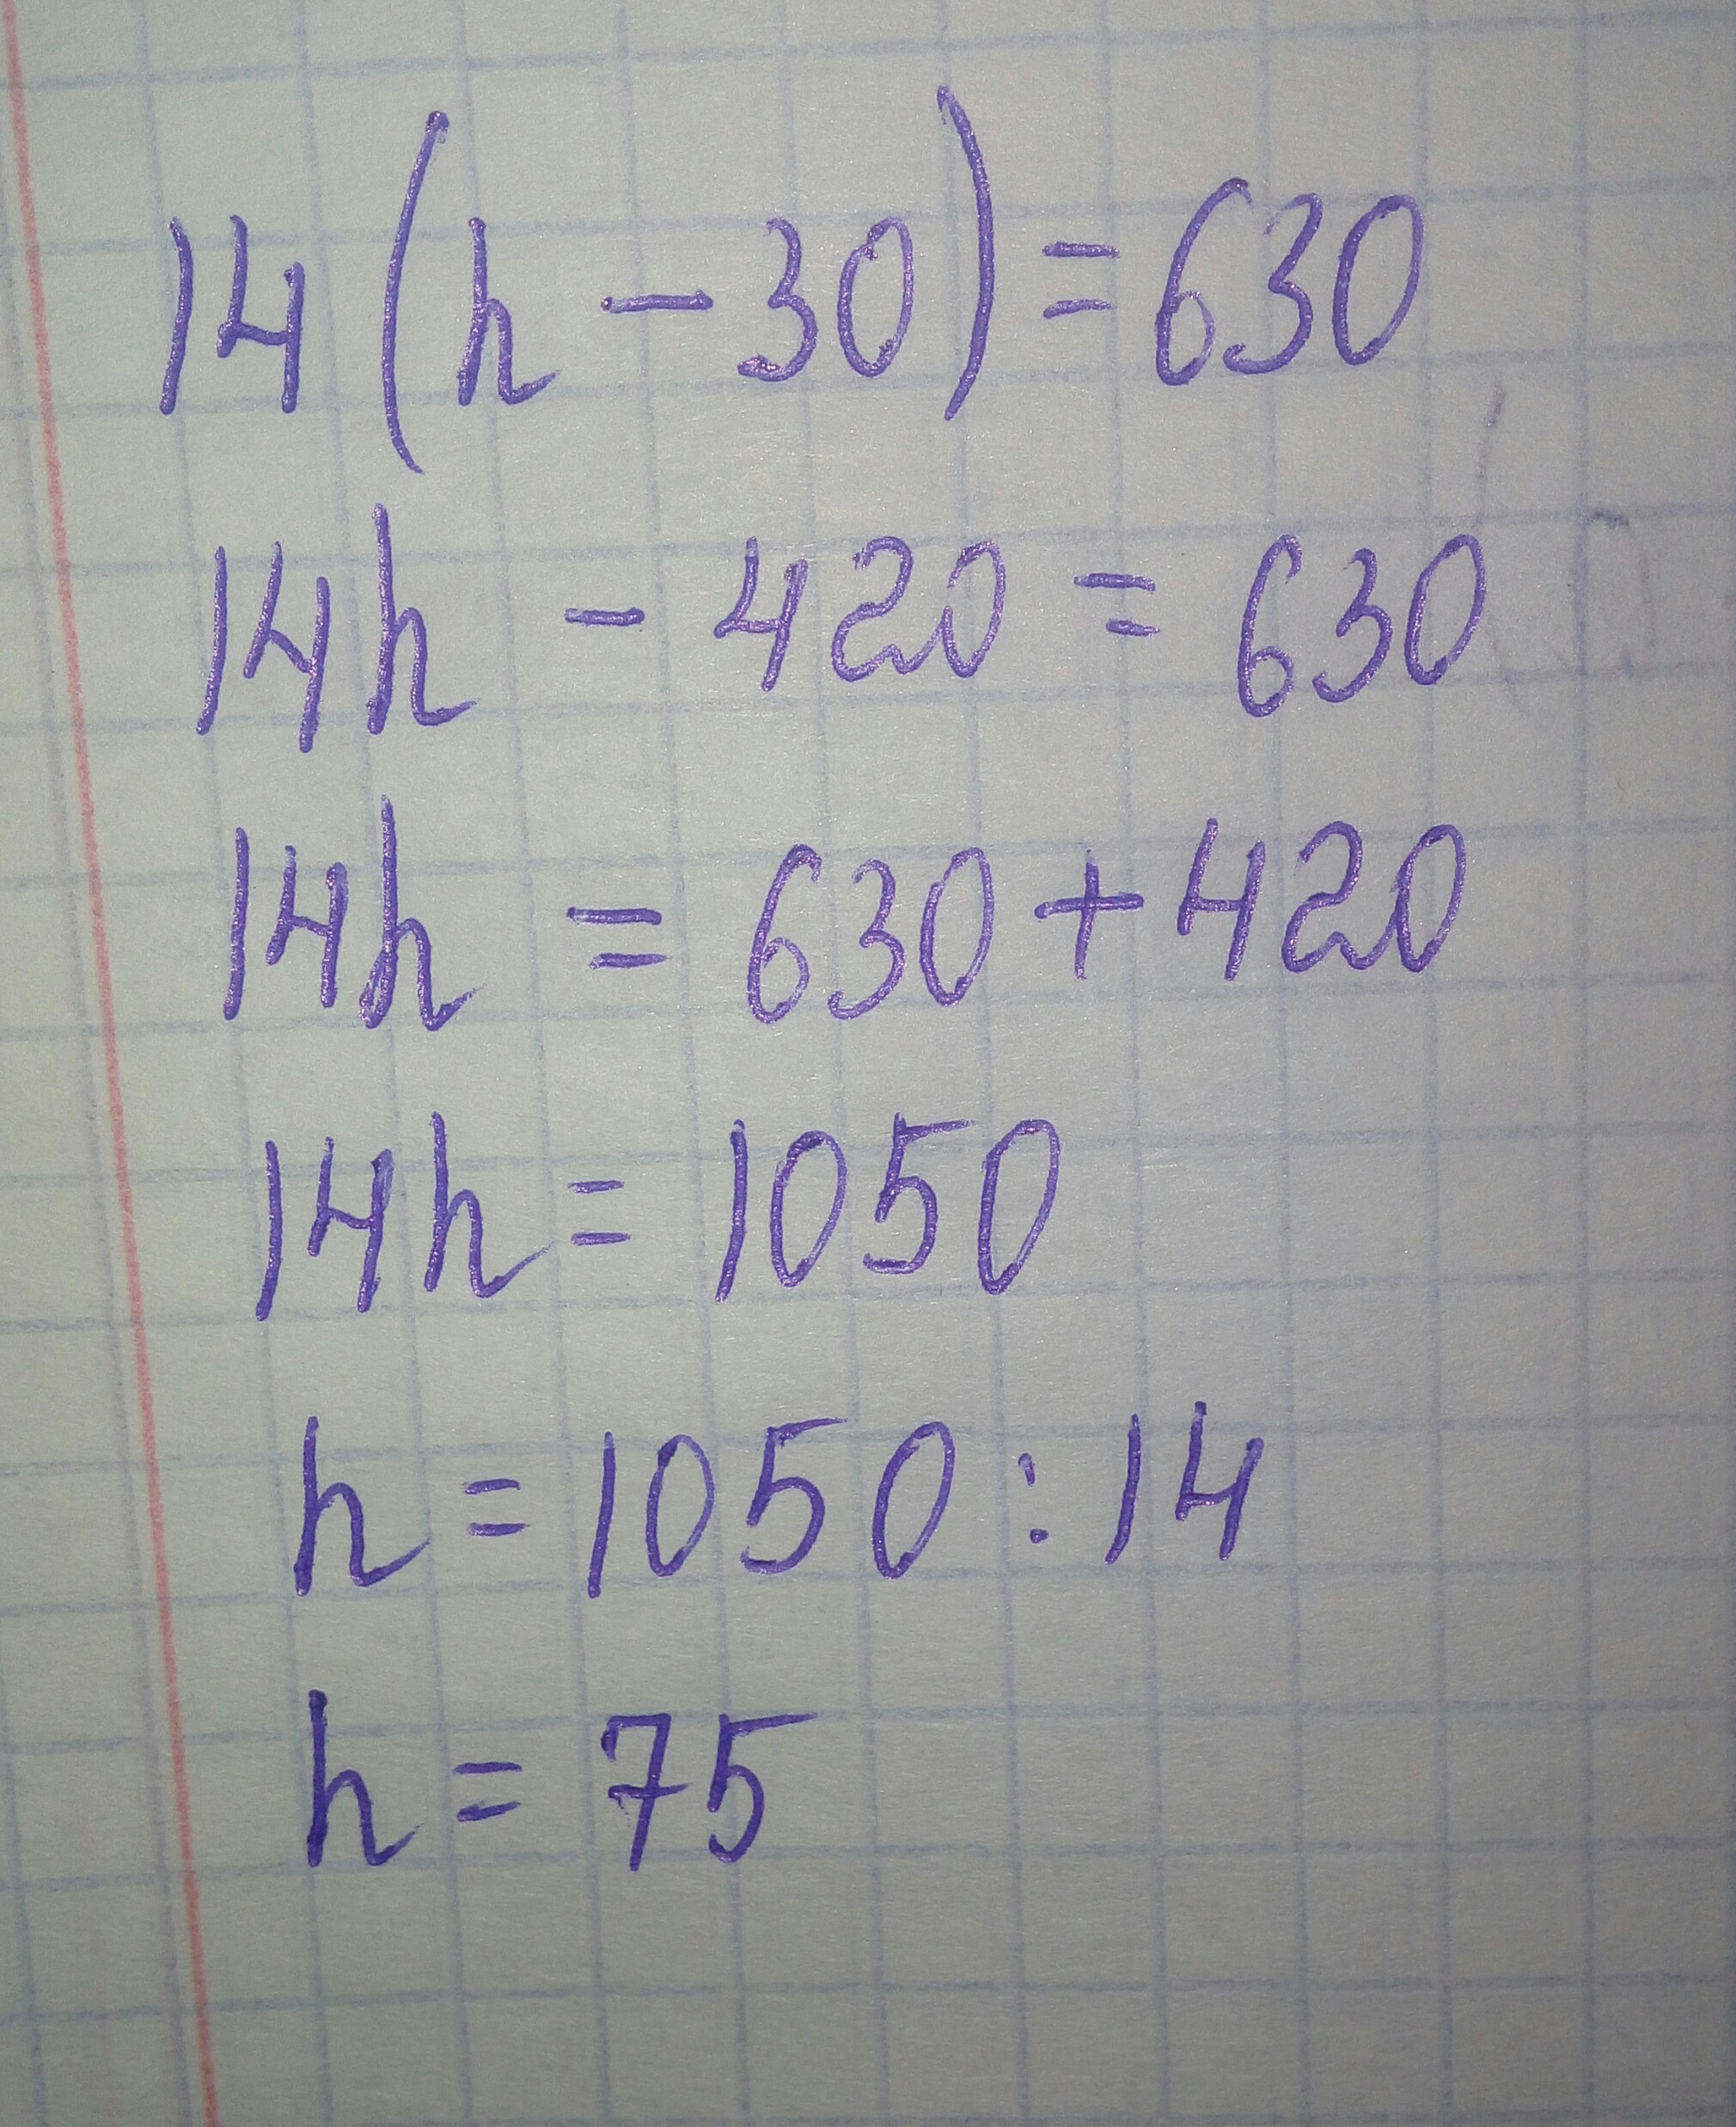 14(h - 30) = 630
14h - 420 = 630
14h = 630 + 420
14h = 1050
h = 1050 : 14
h = 75